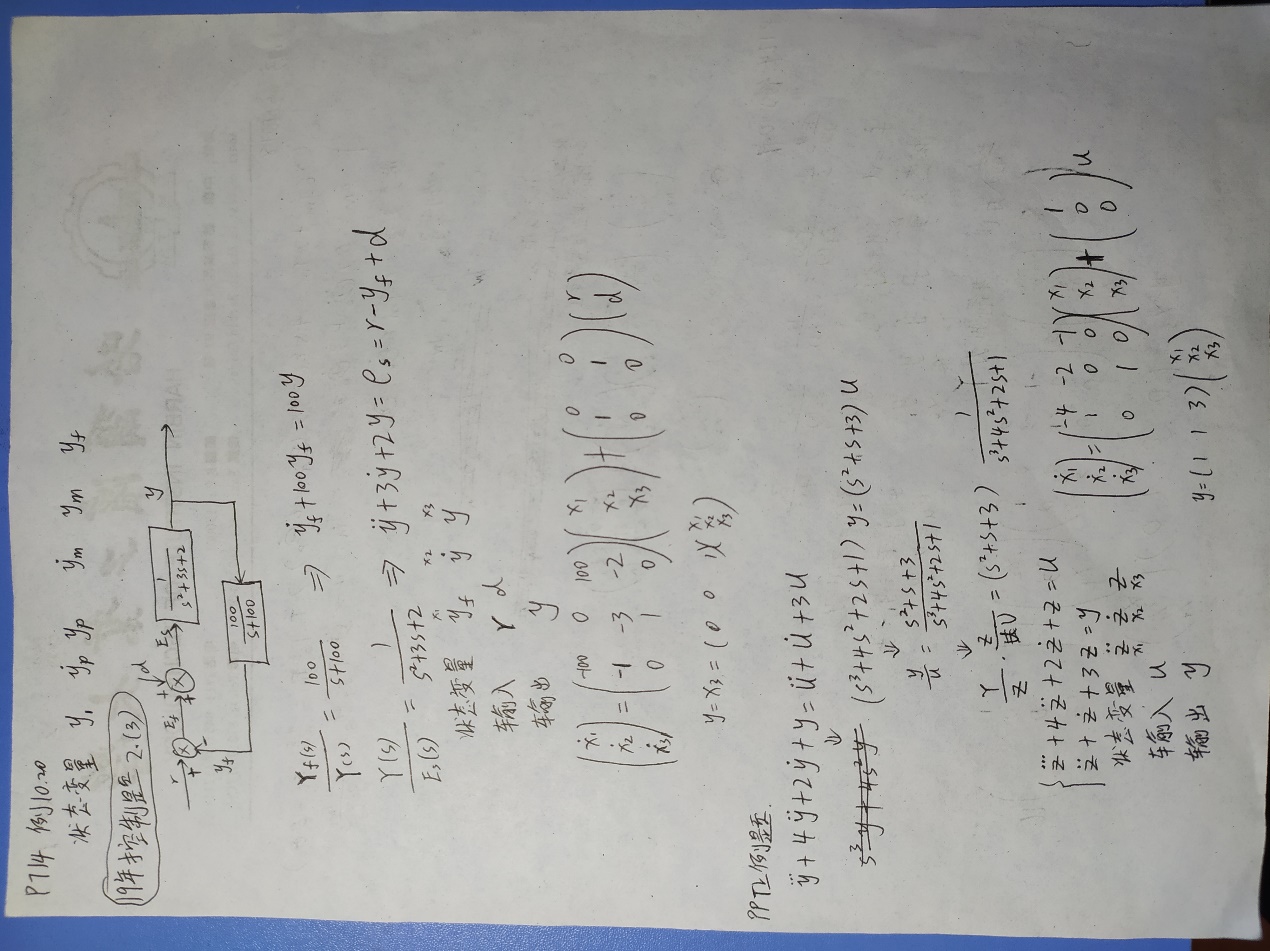 P714 例10.20
状态变量 y₁ ẏp yp ẏm ym yf
19年控制题 2.(3)
d
r + Ef + + Es 1/(s²+3s+2) y
yf −
100/(s+100)
Yf(s)/Y(s) = 100/(s+100) ⇒ ẏf+100yf=100y
Y(s)/Es(s) = 1/(s²+3s+2) ⇒ ÿ+3ẏ+2y=es=r-yf+d
x₁ x₂ x₃
状态变量 yf ẏ y
输入 r d
输出 y
(ẋ₁ ẋ₂ ẋ₃) = (-100 0 100; -1 -3 -2; 0 1 0)(x₁ x₂ x₃)+(0 0; 1 1; 0 0)(r d)
y=x₃=(0 0 1)(x₁ x₂ x₃)
PPT上例题.
y⃛+4ÿ+2ẏ+y=ü+u̇+3u
⇓
s³y+4s²y (s³+4s²+2s+1)y=(s²+s+3)u
⇓
y/u = (s²+s+3)/(s³+4s²+2s+1)
⇓
Y/Z · Z/U = (s²+s+3) 1/(s³+4s²+2s+1)
z⃛+4z̈+2ż+z=u
z̈+ż+3z=y
状态变量 z̈ ż z
x₁ x₂ x₃
输入 u
输出 y
(ẋ₁ ẋ₂ ẋ₃) = (-4 -2 -1; 1 0 0; 0 1 0)(x₁ x₂ x₃)+(1 0 0)u
y=(1 1 3)(x₁ x₂ x₃)